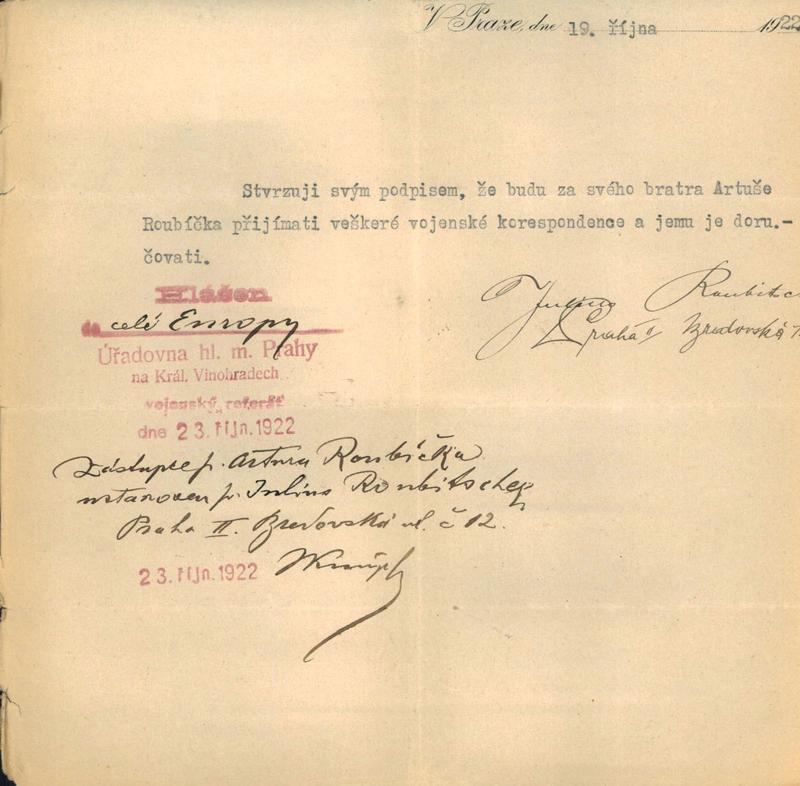 V Praze, dne 19. října 1922
Stvrzuji svým podpisem, že budu za svého bratra Artuše
Roubíčka přijímati veškeré vojenské korespondence a jemu je doru.-
čovati.
Julius Roubitsc
Praha II Bredovská
Hlášen
do celé Europy
Úřadovna hl. m. Prahy
na Král. Vinohradech
vojenský referát
dne 23. říjn. 1922
Zástupce p. Artura Roubíčka
ustanoven p. Julius Roubitschek
Praha II. Bredovská ul. č 12.
23. říjn. 1922